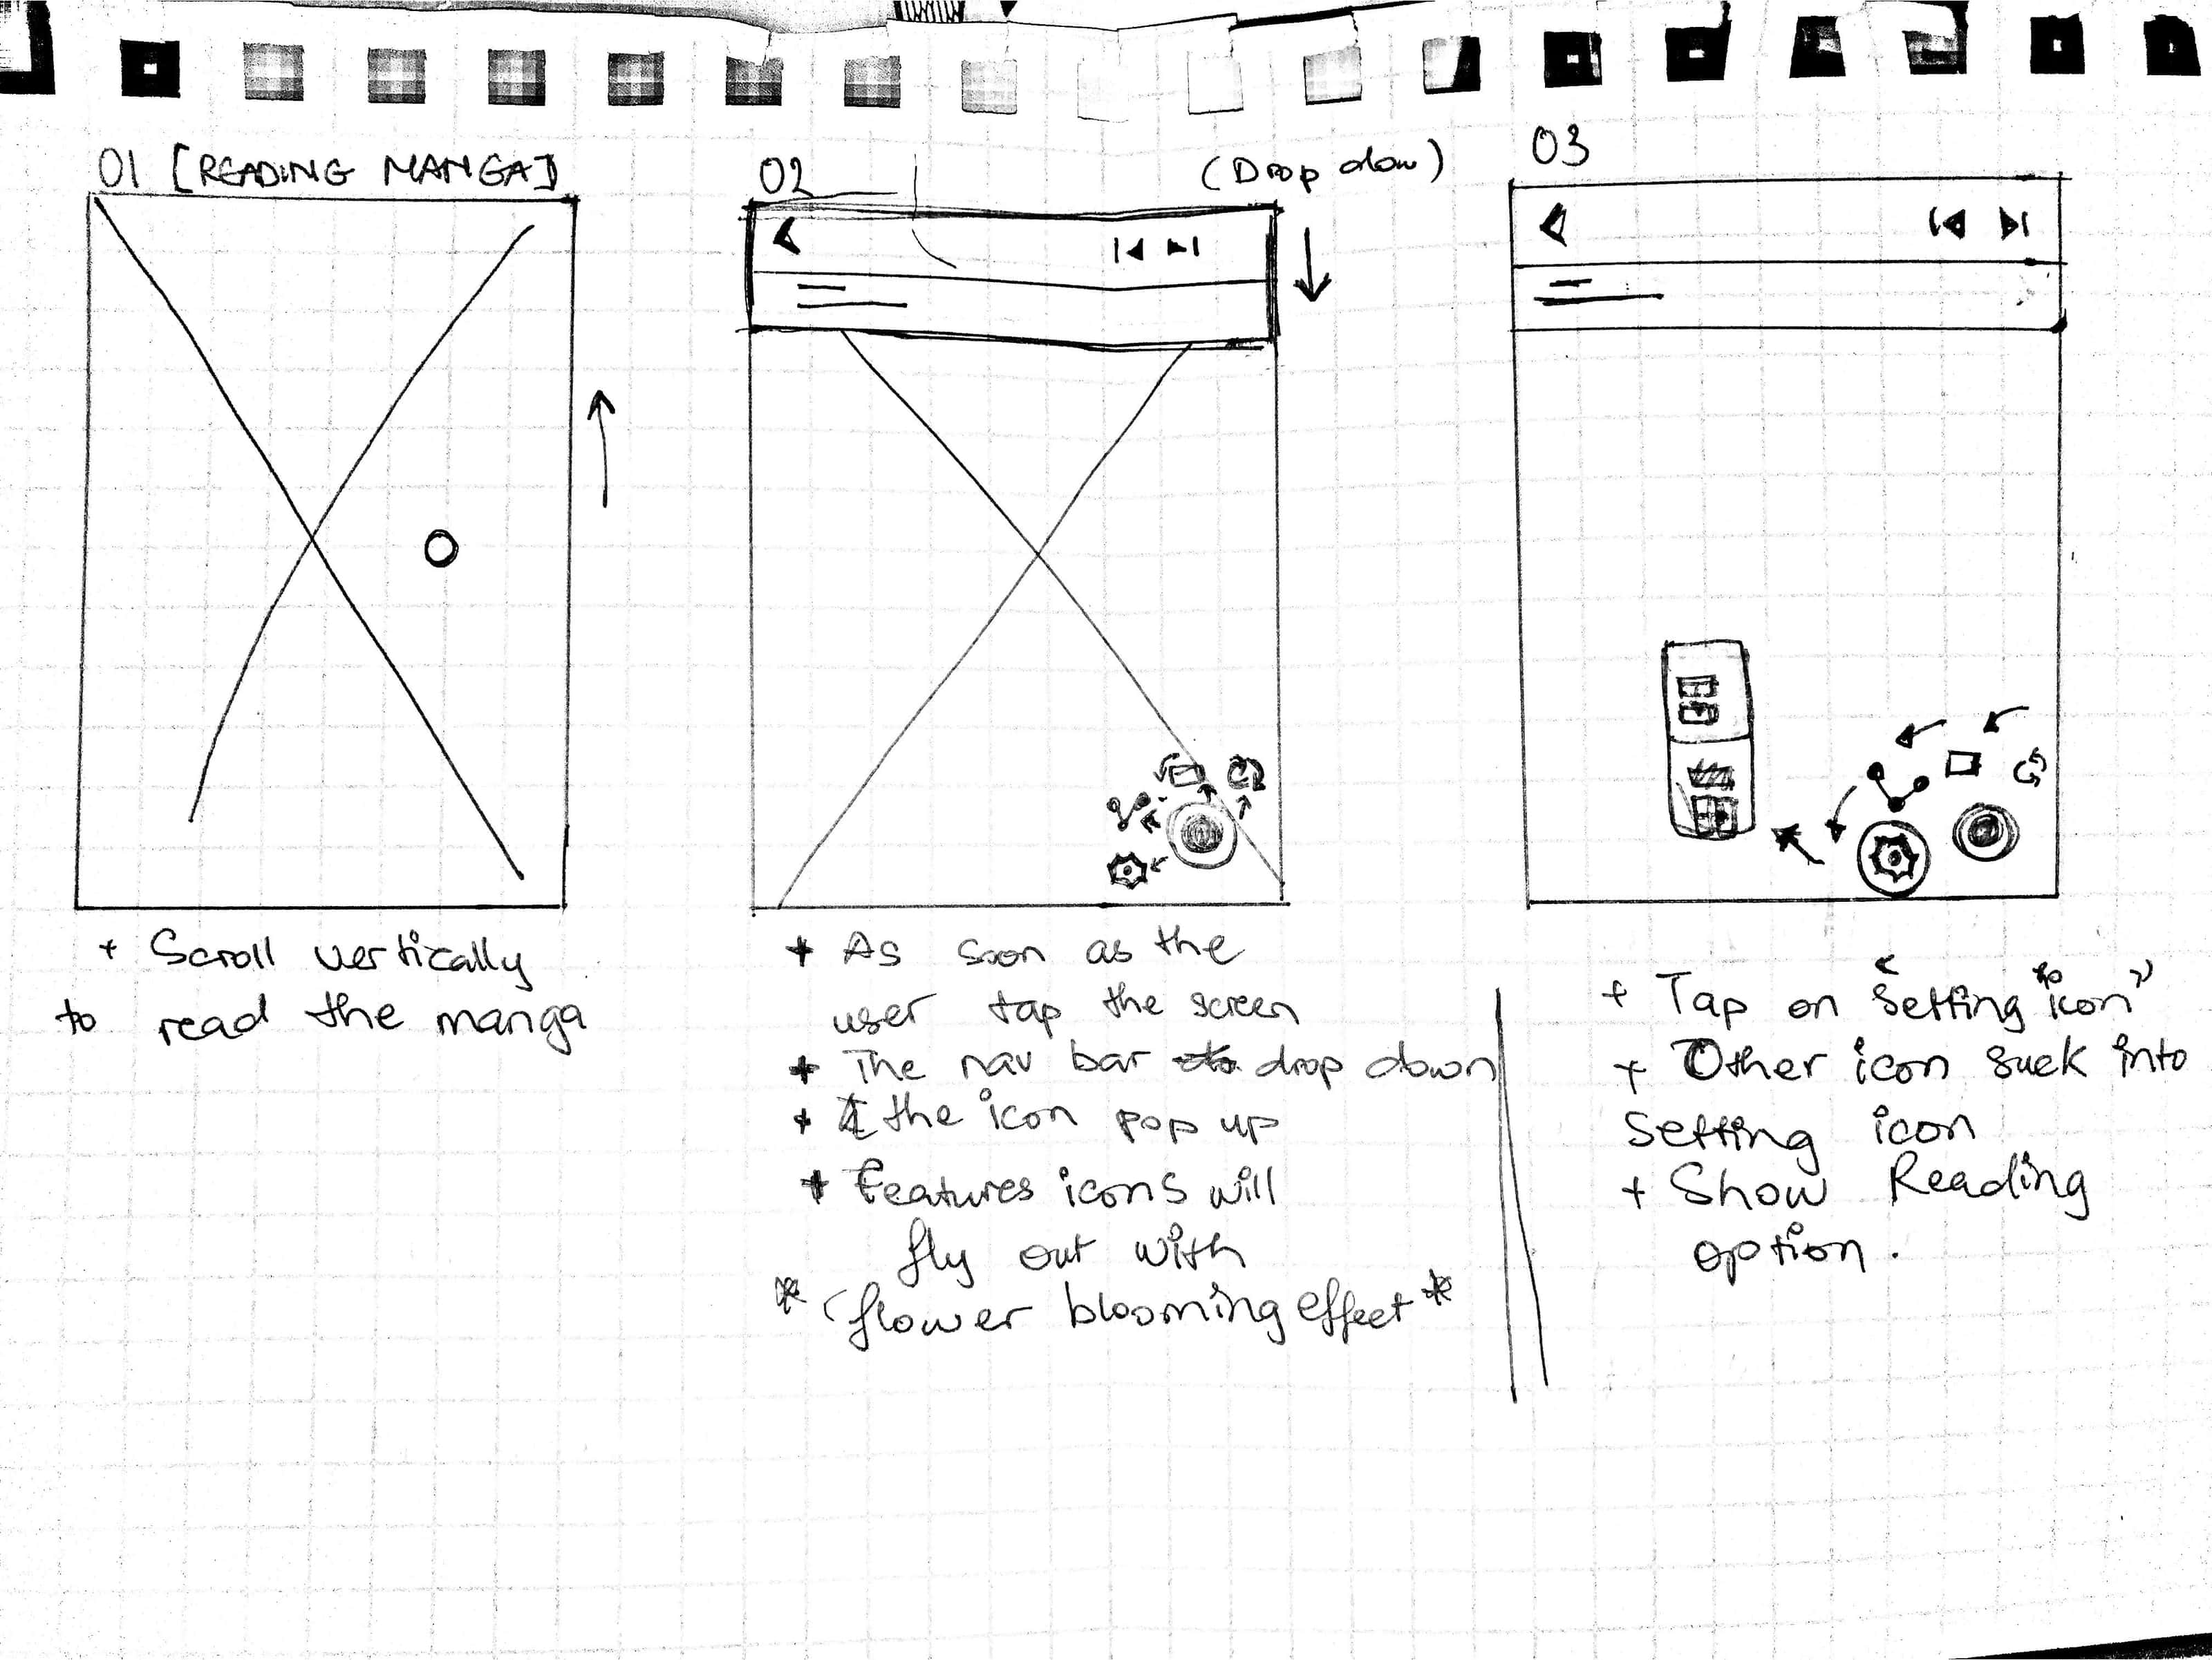 01 [READING MANGA]
+ Scroll vertically
to read the manga
02
(Drop down)
+ As soon as the
user tap the screen
+ The nav bar drop down
+ the icon pop up
+ Features icons will
fly out with
* (flower blooming effect *
03
+ Tap on "setting icon"
+ Other icon suck into
setting icon
+ Show Reading
option.